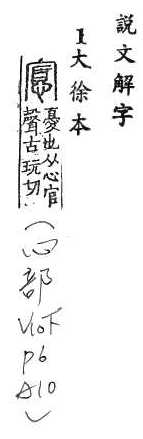 説文解字
1大徐本
悹憂也从心官
聲古玩切
(心部
V10下
P6
A10)